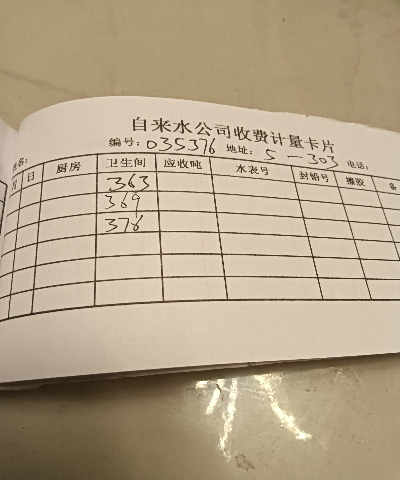 自来水公司收费计量卡片
编号: 035376 地址: 5-303 电话:
名:
月 日 厨房 卫生间 应收吨 水表号 封铅号 橡胶 备
363
369
378